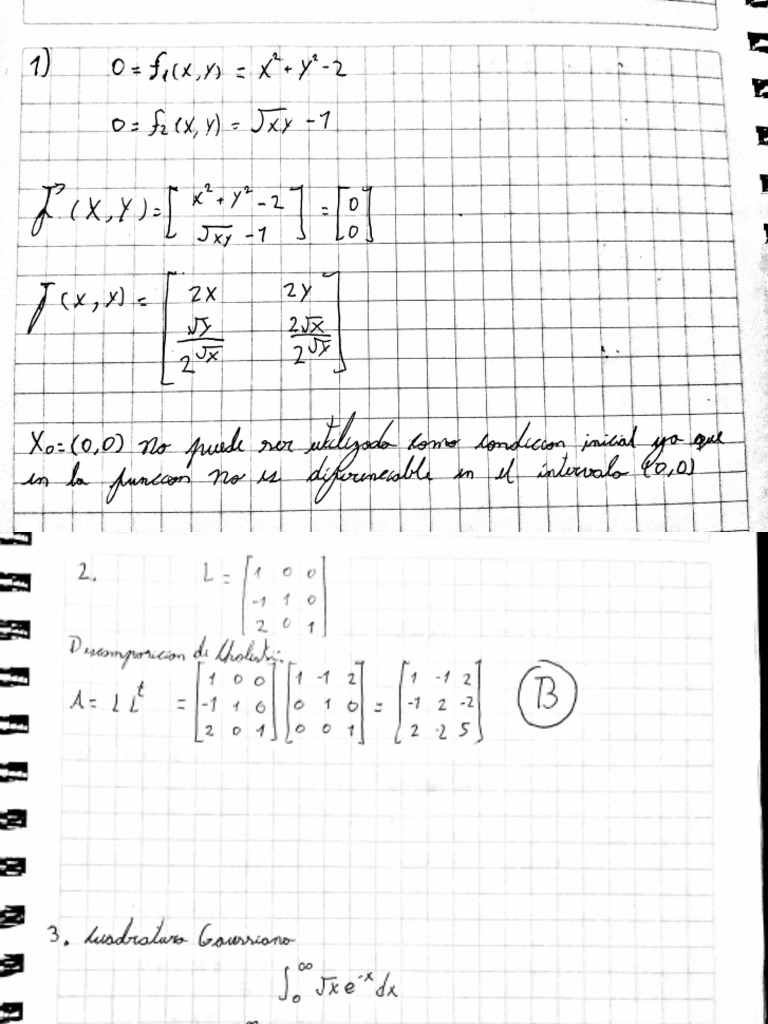 1) 0 = f₁(x,y) = x² + y² - 2
0 = f₂(x,y) = √xy - 1
F⃗ (x,y) = [ x² + y² - 2 ; √xy - 1 ] = [ 0 ; 0 ]
J (x,y) = [ 2x 2y ; √y / 2√x 2√x / 2√y ]
X₀ = (0,0) no puede ser utilizado como condicion inicial ya que
en la funcion no es diferenciable en el intervalo (0,0)
2. L = [ 1 0 0 ; -1 1 0 ; 2 0 1 ]
Descomposicion de
A = L Lᵗ = [ 1 0 0 ; -1 1 0 ; 2 0 1 ] [ 1 -1 2 ; 0 1 0 ; 0 0 1 ] = [ 1 -1 2 ; -1 2 -2 ; 2 -2 5 ] B
3. Cuadratura Gaussiana
∫₀^∞ √x e^-x dx